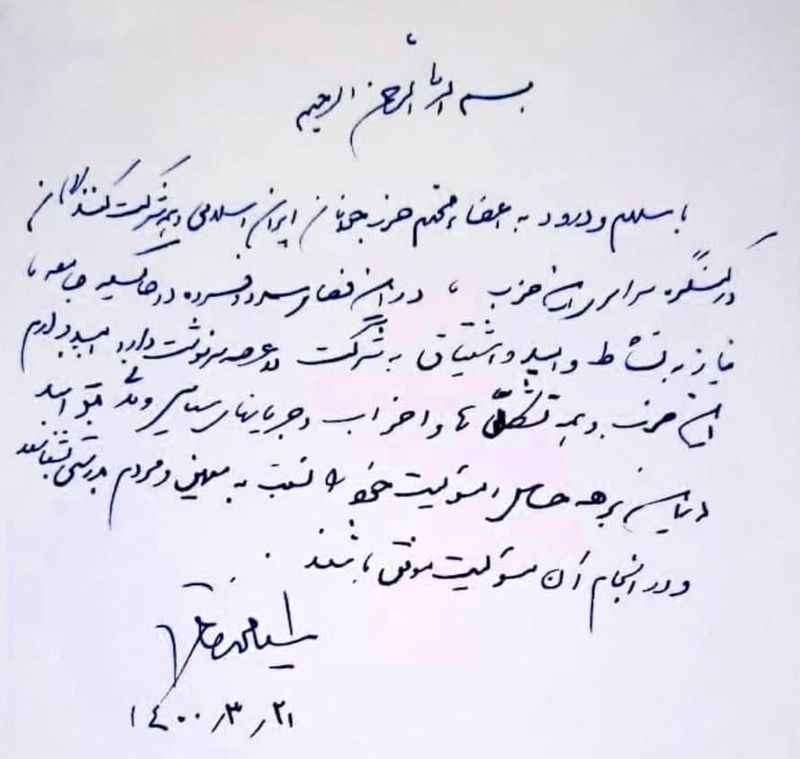 بسم الله الرحمن الرحیم
با سلام و درود به اعضاء محترم حزب جوانان ایران اسلامی و همه شرکت کنندگان
در کنگره سراسری این حزب ، در این فضای سرد و فسرده در حالیکه جامعه ما
نیاز به نشاط و امید و اشتیاق به شرکت در عرصه سرنوشت دارد امیدوارم
این حزب و همه تشکّل ها و احزاب و جریانهای سیاسی و مدنی بتوانند
در این برهه حساس مسئولیت خود را نسبت به میهن و مردم بدرستی بشناسند
و در انجام آن مسئولیت موفق باشند .
سید محمد خاتمی
۱۴۰۰٫۳٫۲۱